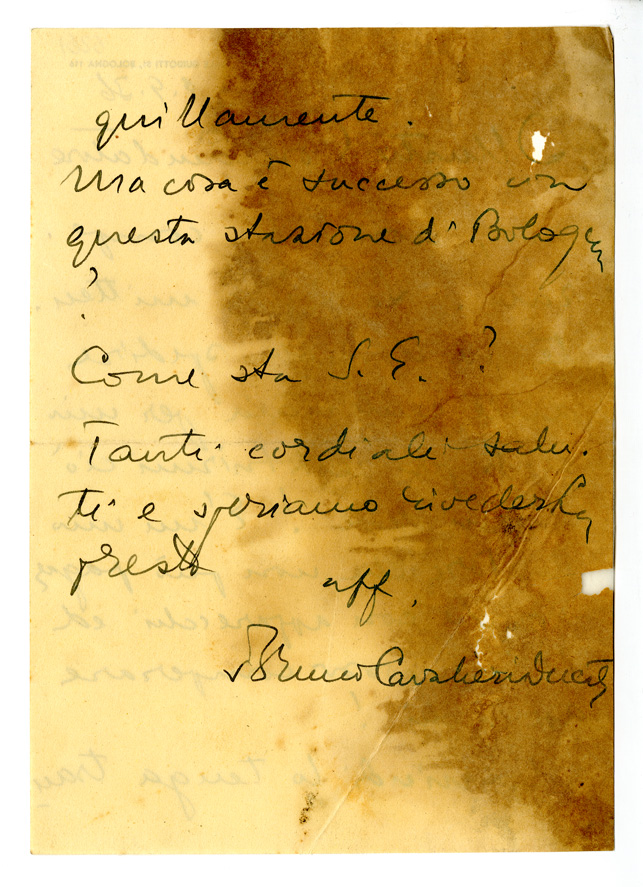 quillamente.
Ma cosa è successo con
questa stazione di Bologna
?
Come sta S. E. ?
Tanti cordiali salu-
ti e speriamo rivederLa
presto
aff.
Bruno Cavalieri Ducati